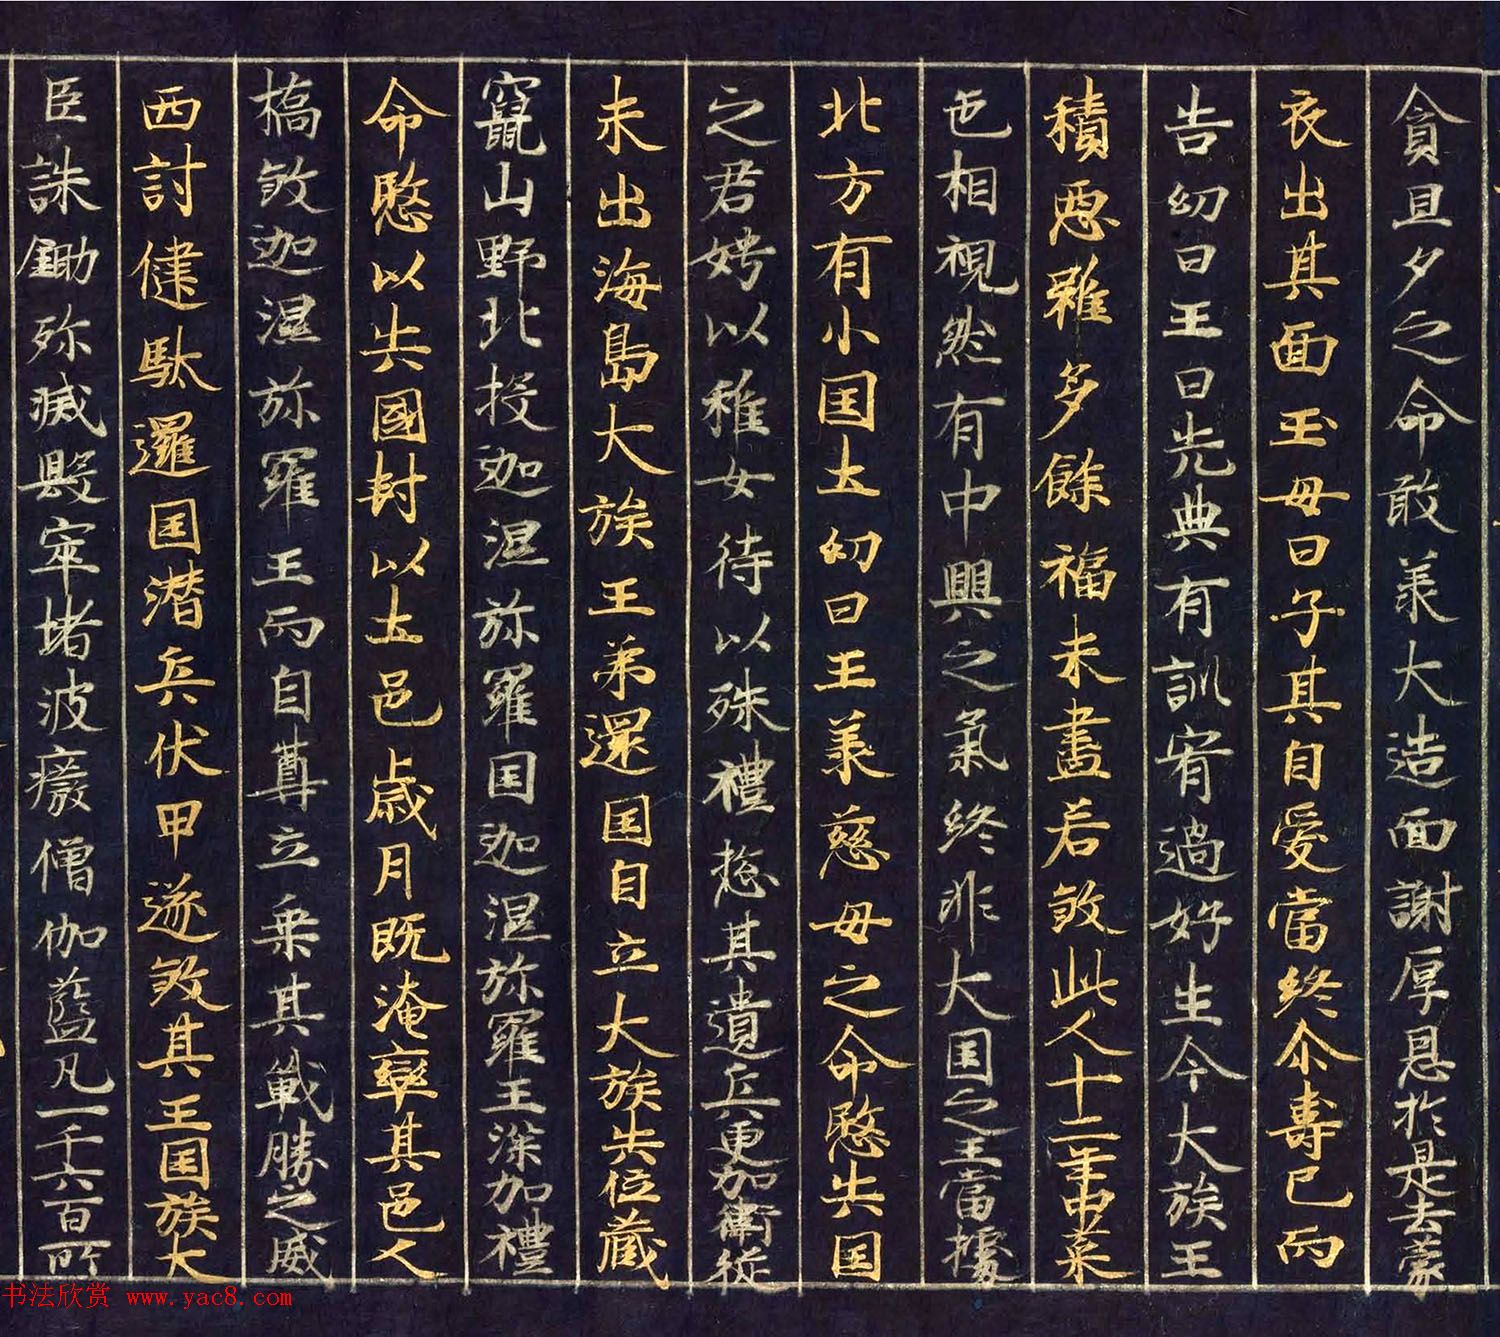 貪旦夕之命敢承大造面謝厚恩於是去蒙
衣出其面王母曰子其自愛當終尒壽已而
告幼日王曰先典有訓宥過好生今大族王
積惡雖多餘福未盡若煞此人十二年中菜
色相視然有中興之氣終非大国之王當據
北方有小国土幼日王承慈母之命愍失国
之君娉以稚女待以殊禮揔其遺兵更加衛從
未出海島大族王弟還国自立大族失位藏
竄山野北投迦濕弥羅国迦濕弥羅王深加禮
命愍以失國封以土邑歲月既淹率其邑人
撟煞迦濕弥羅王而自尊立乗其戰勝之威
西討健馱邏国潜兵伏甲遂煞其王国族大
臣誅鋤殄滅毀窣堵波癈僧伽藍凡一千六百所
书法欣赏 www.yac8.com